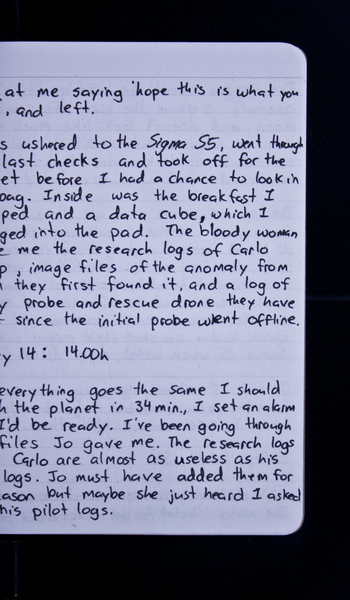 at me saying 'hope this is what you
, and left.
s ushered to the Sigma S5, went through
last checks and took off for the
et before I had a chance to look in
bag. Inside was the breakfast I
ped and a data cube, which I
ged into the pad. The bloody woman
e me the research logs of Carlo
p, image files of the anomaly from
they first found it, and a log of
y probe and rescue drone they have
t since the initial probe went offline.
y 14: 14.00h
everything goes the same I should
h the planet in 34 min., I set an alarm
I'd be ready. I've been going through
files Jo gave me. The research logs
Carlo are almost as useless as his
logs. Jo must have added them for
eason but maybe she just heard I asked
his pilot logs.